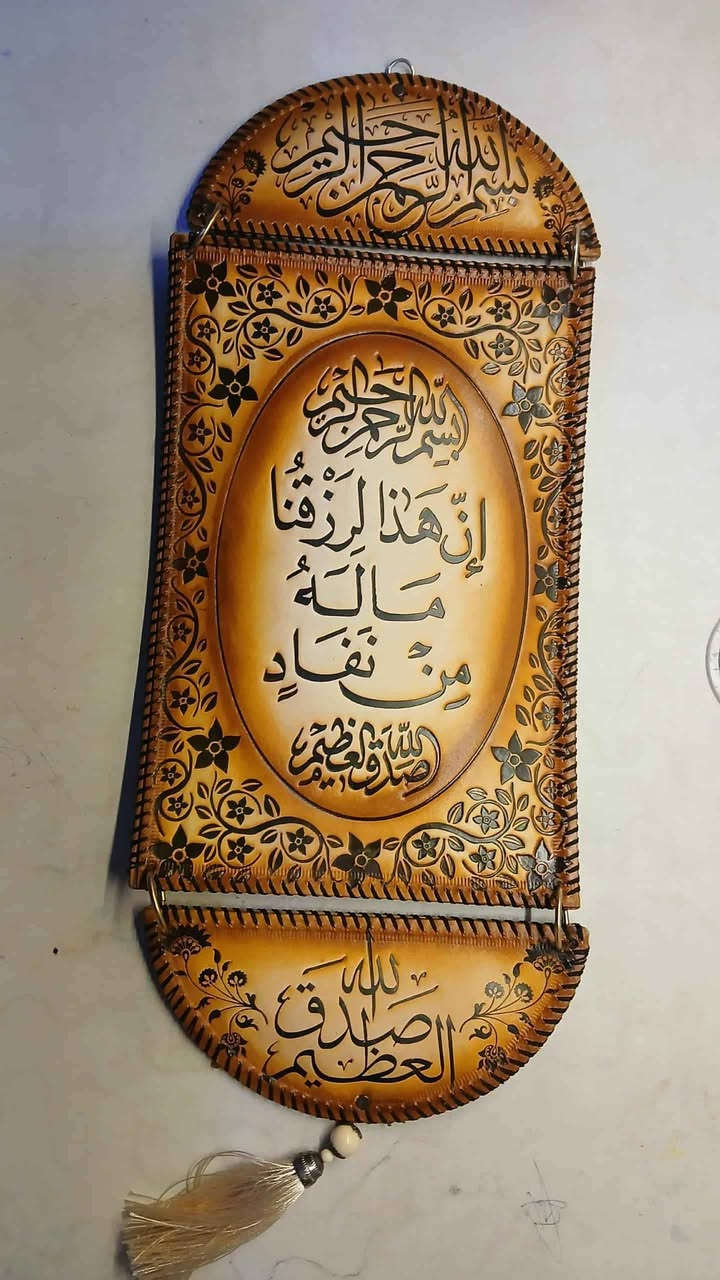 بسم الله الرحمن الرحيم
بسم الله الرحمن الرحيم
إنّ هَذا لَرِزْقُنا
مَا لَهُ
مِنْ نَفَادٍ
صدق الله العظيم
صدق الله
العظيم